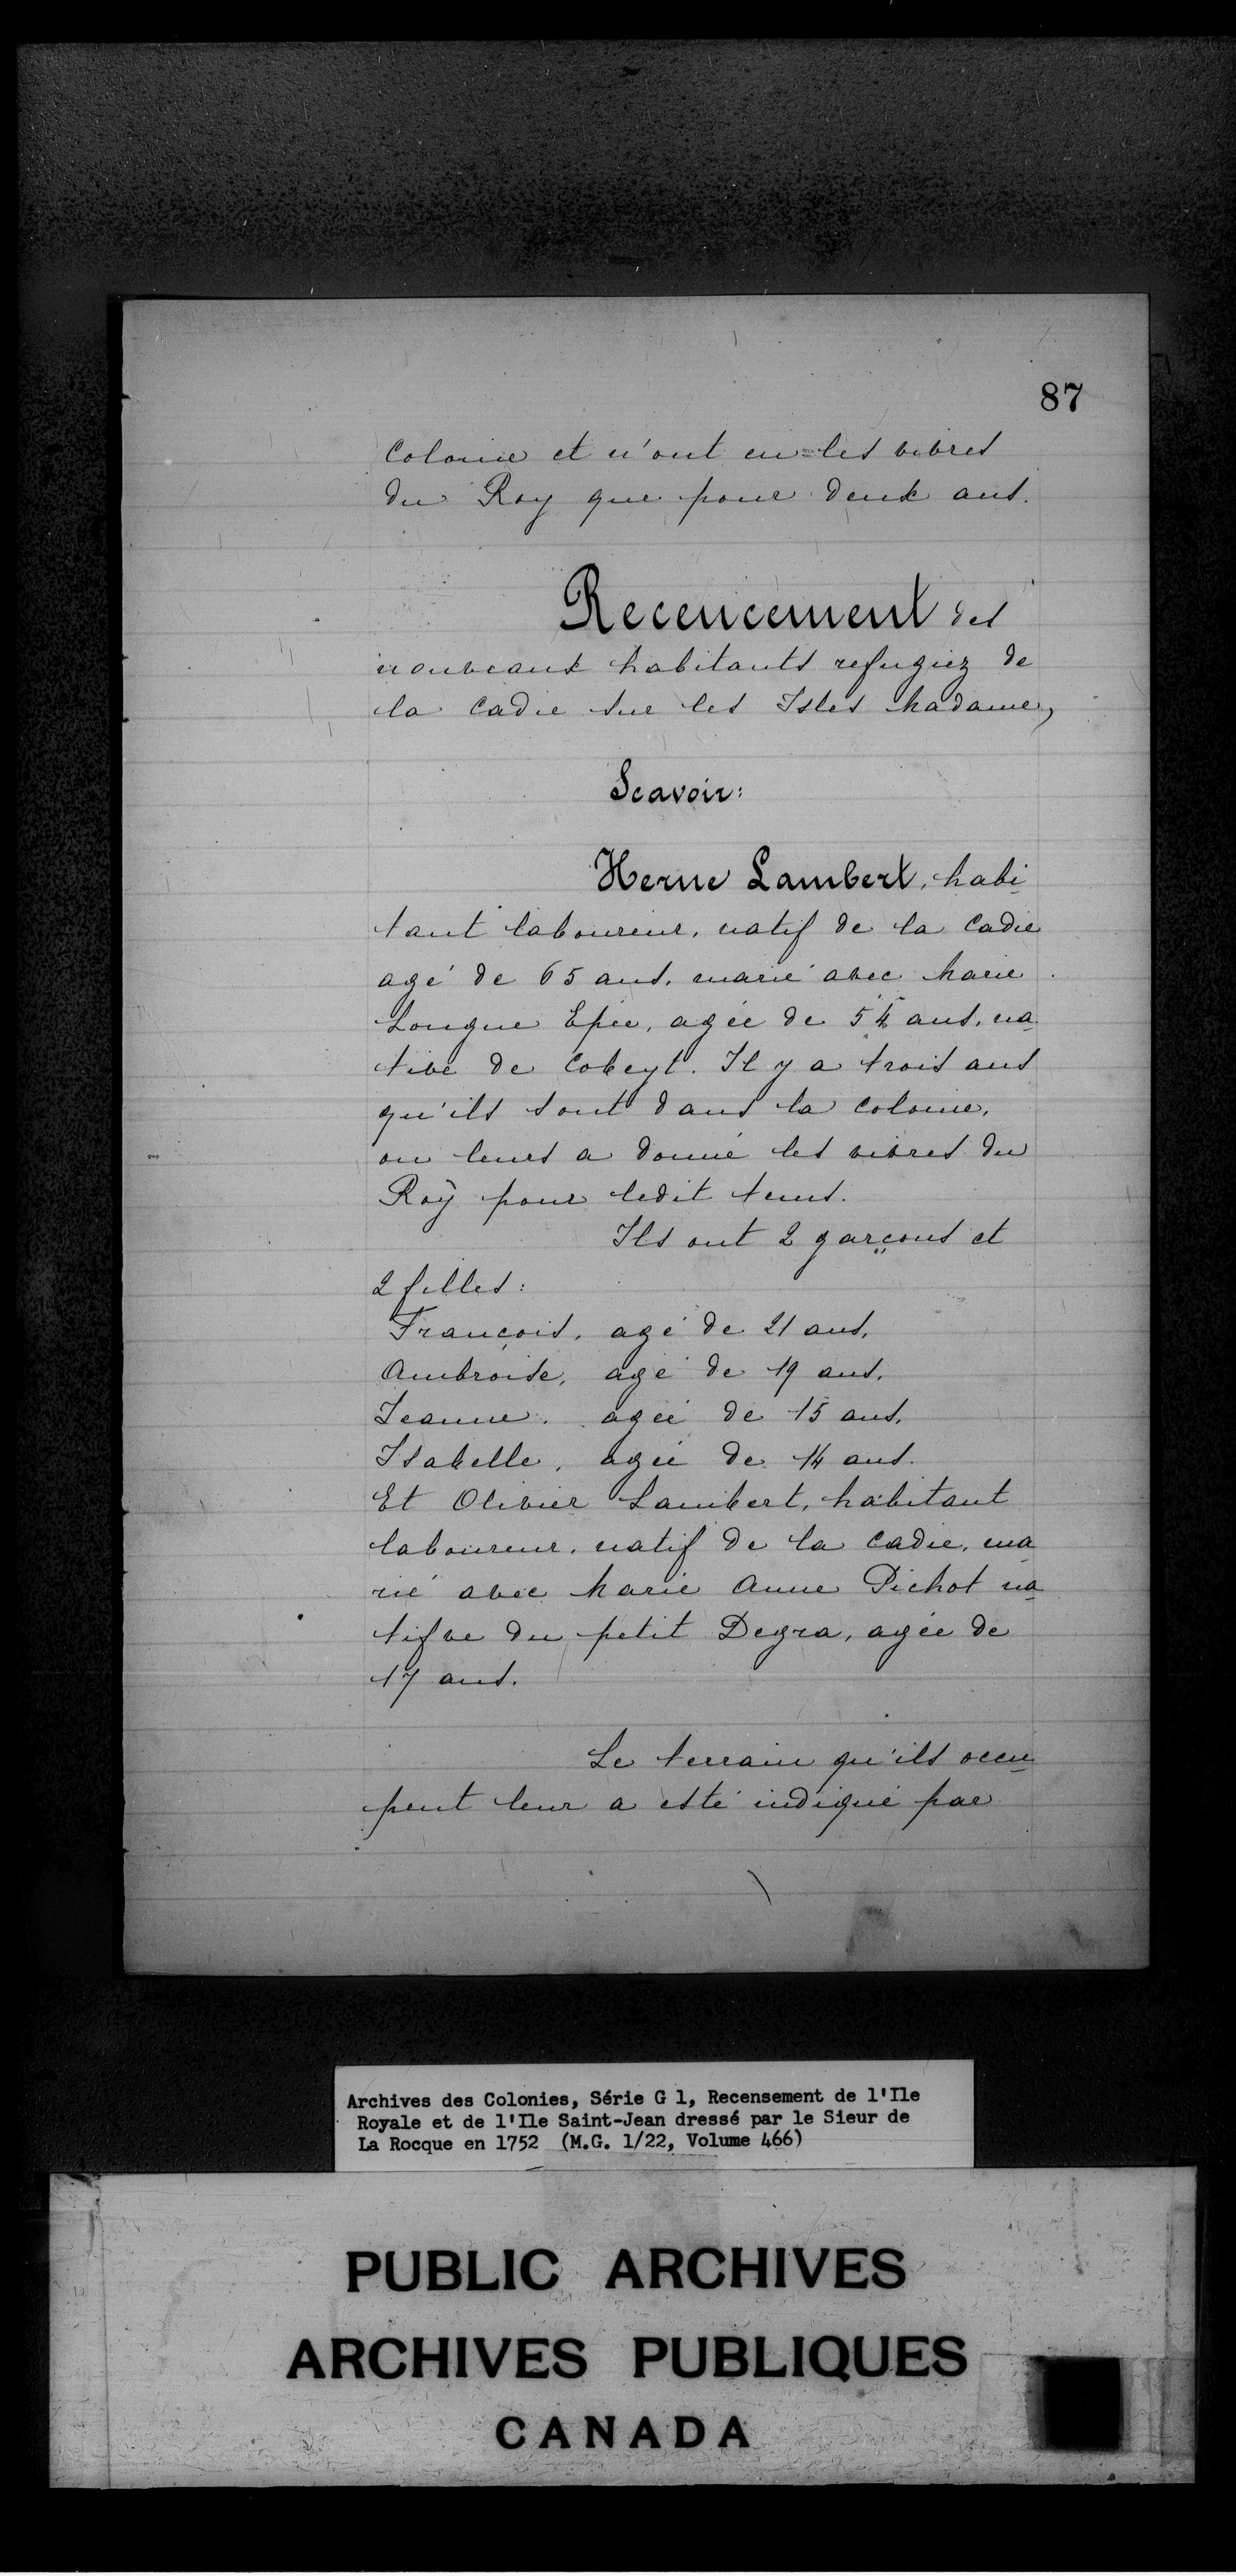 87
Colonie et n'ont eu les vivres
du Roy que pour deux ans.
Recencement des
nouveaux habitants refugiez de
la Cadie sur les Isles Madame,
Scavoir:
Herne Lambert, habi-
tant laboureur, natif de la Cadie
agé de 65 ans, marié avec Marie
Longue Epée, agée de 54 ans, na-
tive de Cobeyt. Il y a trois ans
qu'ils sont dans la Colonie,
on leurs a donné les vivres du
Roÿ pour ledit tems.
Ils ont 2 garçons et
2 filles:
François, agé de 21 ans,
Ambroise, agé de 19 ans,
Jeanne, agée de 15 ans,
Isabelle, agée de 14 ans.
Et Olivier Lambert, habitant
laboureur, natif de la Cadie, ma-
rié avec Marie Anne Pichot na-
tifve du petit Degra, agée de
17 ans.
Le terrain qu'ils occu-
pent leur a esté indiqué par
Archives des Colonies, Série G 1, Recensement de l'Ile
Royale et de l'Ile Saint-Jean dressé par le Sieur de
La Rocque en 1752 (M.G. 1/22, Volume 466)
PUBLIC ARCHIVES
ARCHIVES PUBLIQUES
CANADA